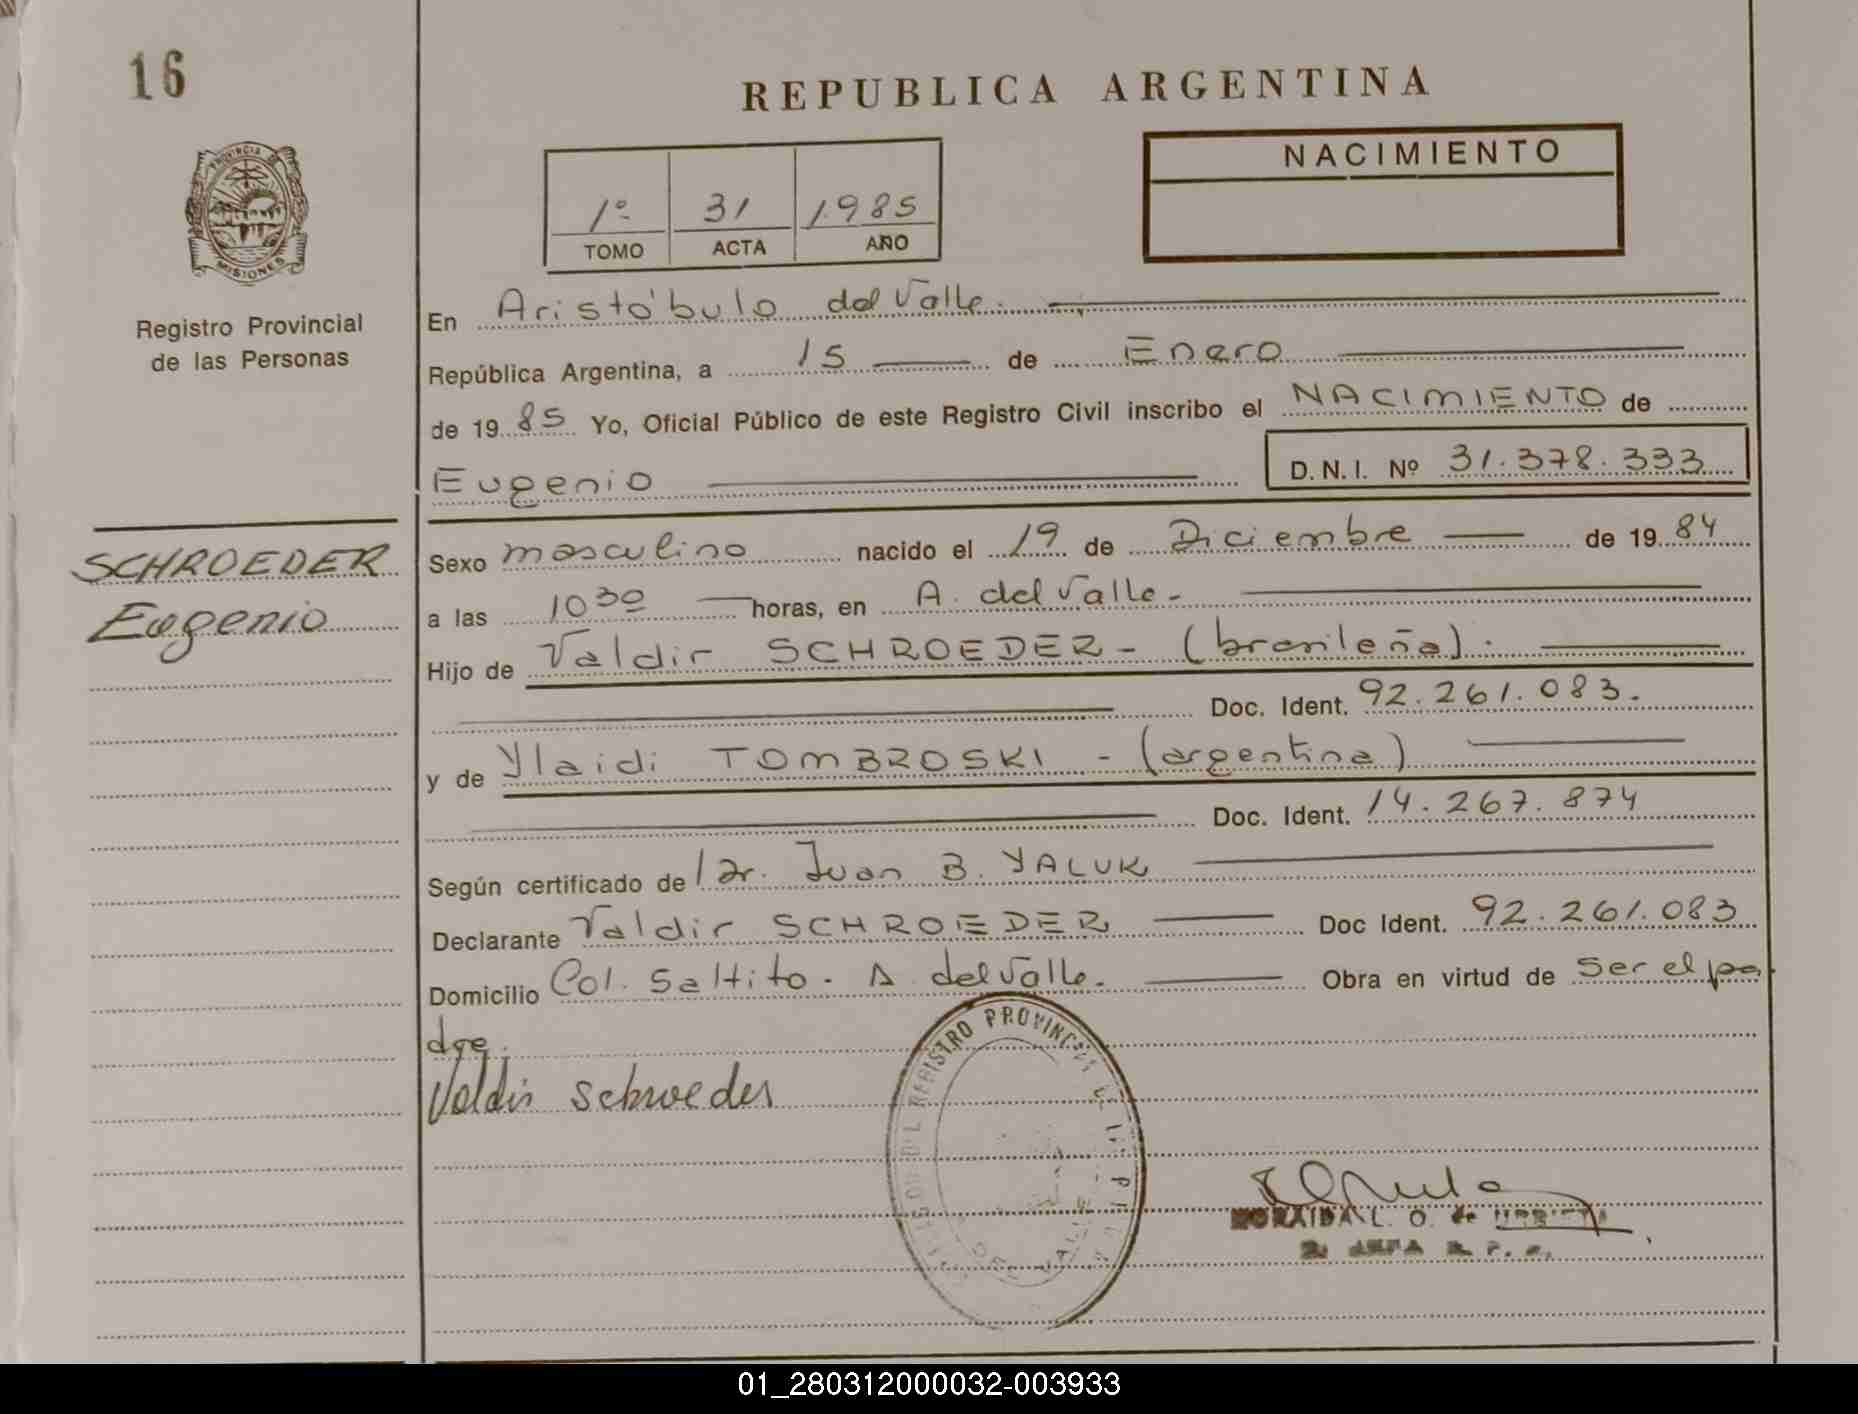 16
REPUBLICA ARGENTINA
PROVINCIA DE
MISIONES
Registro Provincial
de las Personas
1º 31 1985
TOMO ACTA AÑO
NACIMIENTO
En Aristóbulo del Valle.
República Argentina, a 15 de Enero
de 1985 Yo, Oficial Público de este Registro Civil inscribo el NACIMIENTO de
Eugenio D.N.I. Nº 31.378.333
SCHROEDER
Eugenio
Sexo masculino nacido el 19 de Diciembre de 1984
a las 10 30 horas, en A. del Valle.-
Hijo de Valdir SCHROEDER - (brasileña).
Doc. Ident. 92.261.083.
y de Ylaidi TOMBROSKI - (argentina)
Doc. Ident. 14.267.874
Según certificado de Dr. Juan B. YALUK
Declarante Valdir SCHROEDER Doc Ident. 92.261.083
Domicilio Col. Saltito. A. del Valle. Obra en virtud de ser el pa
dre.
Valdir Schroeder
REGISTRO PROVINCIAL DE
VALLE
L. O. de
01_280312000032-003933